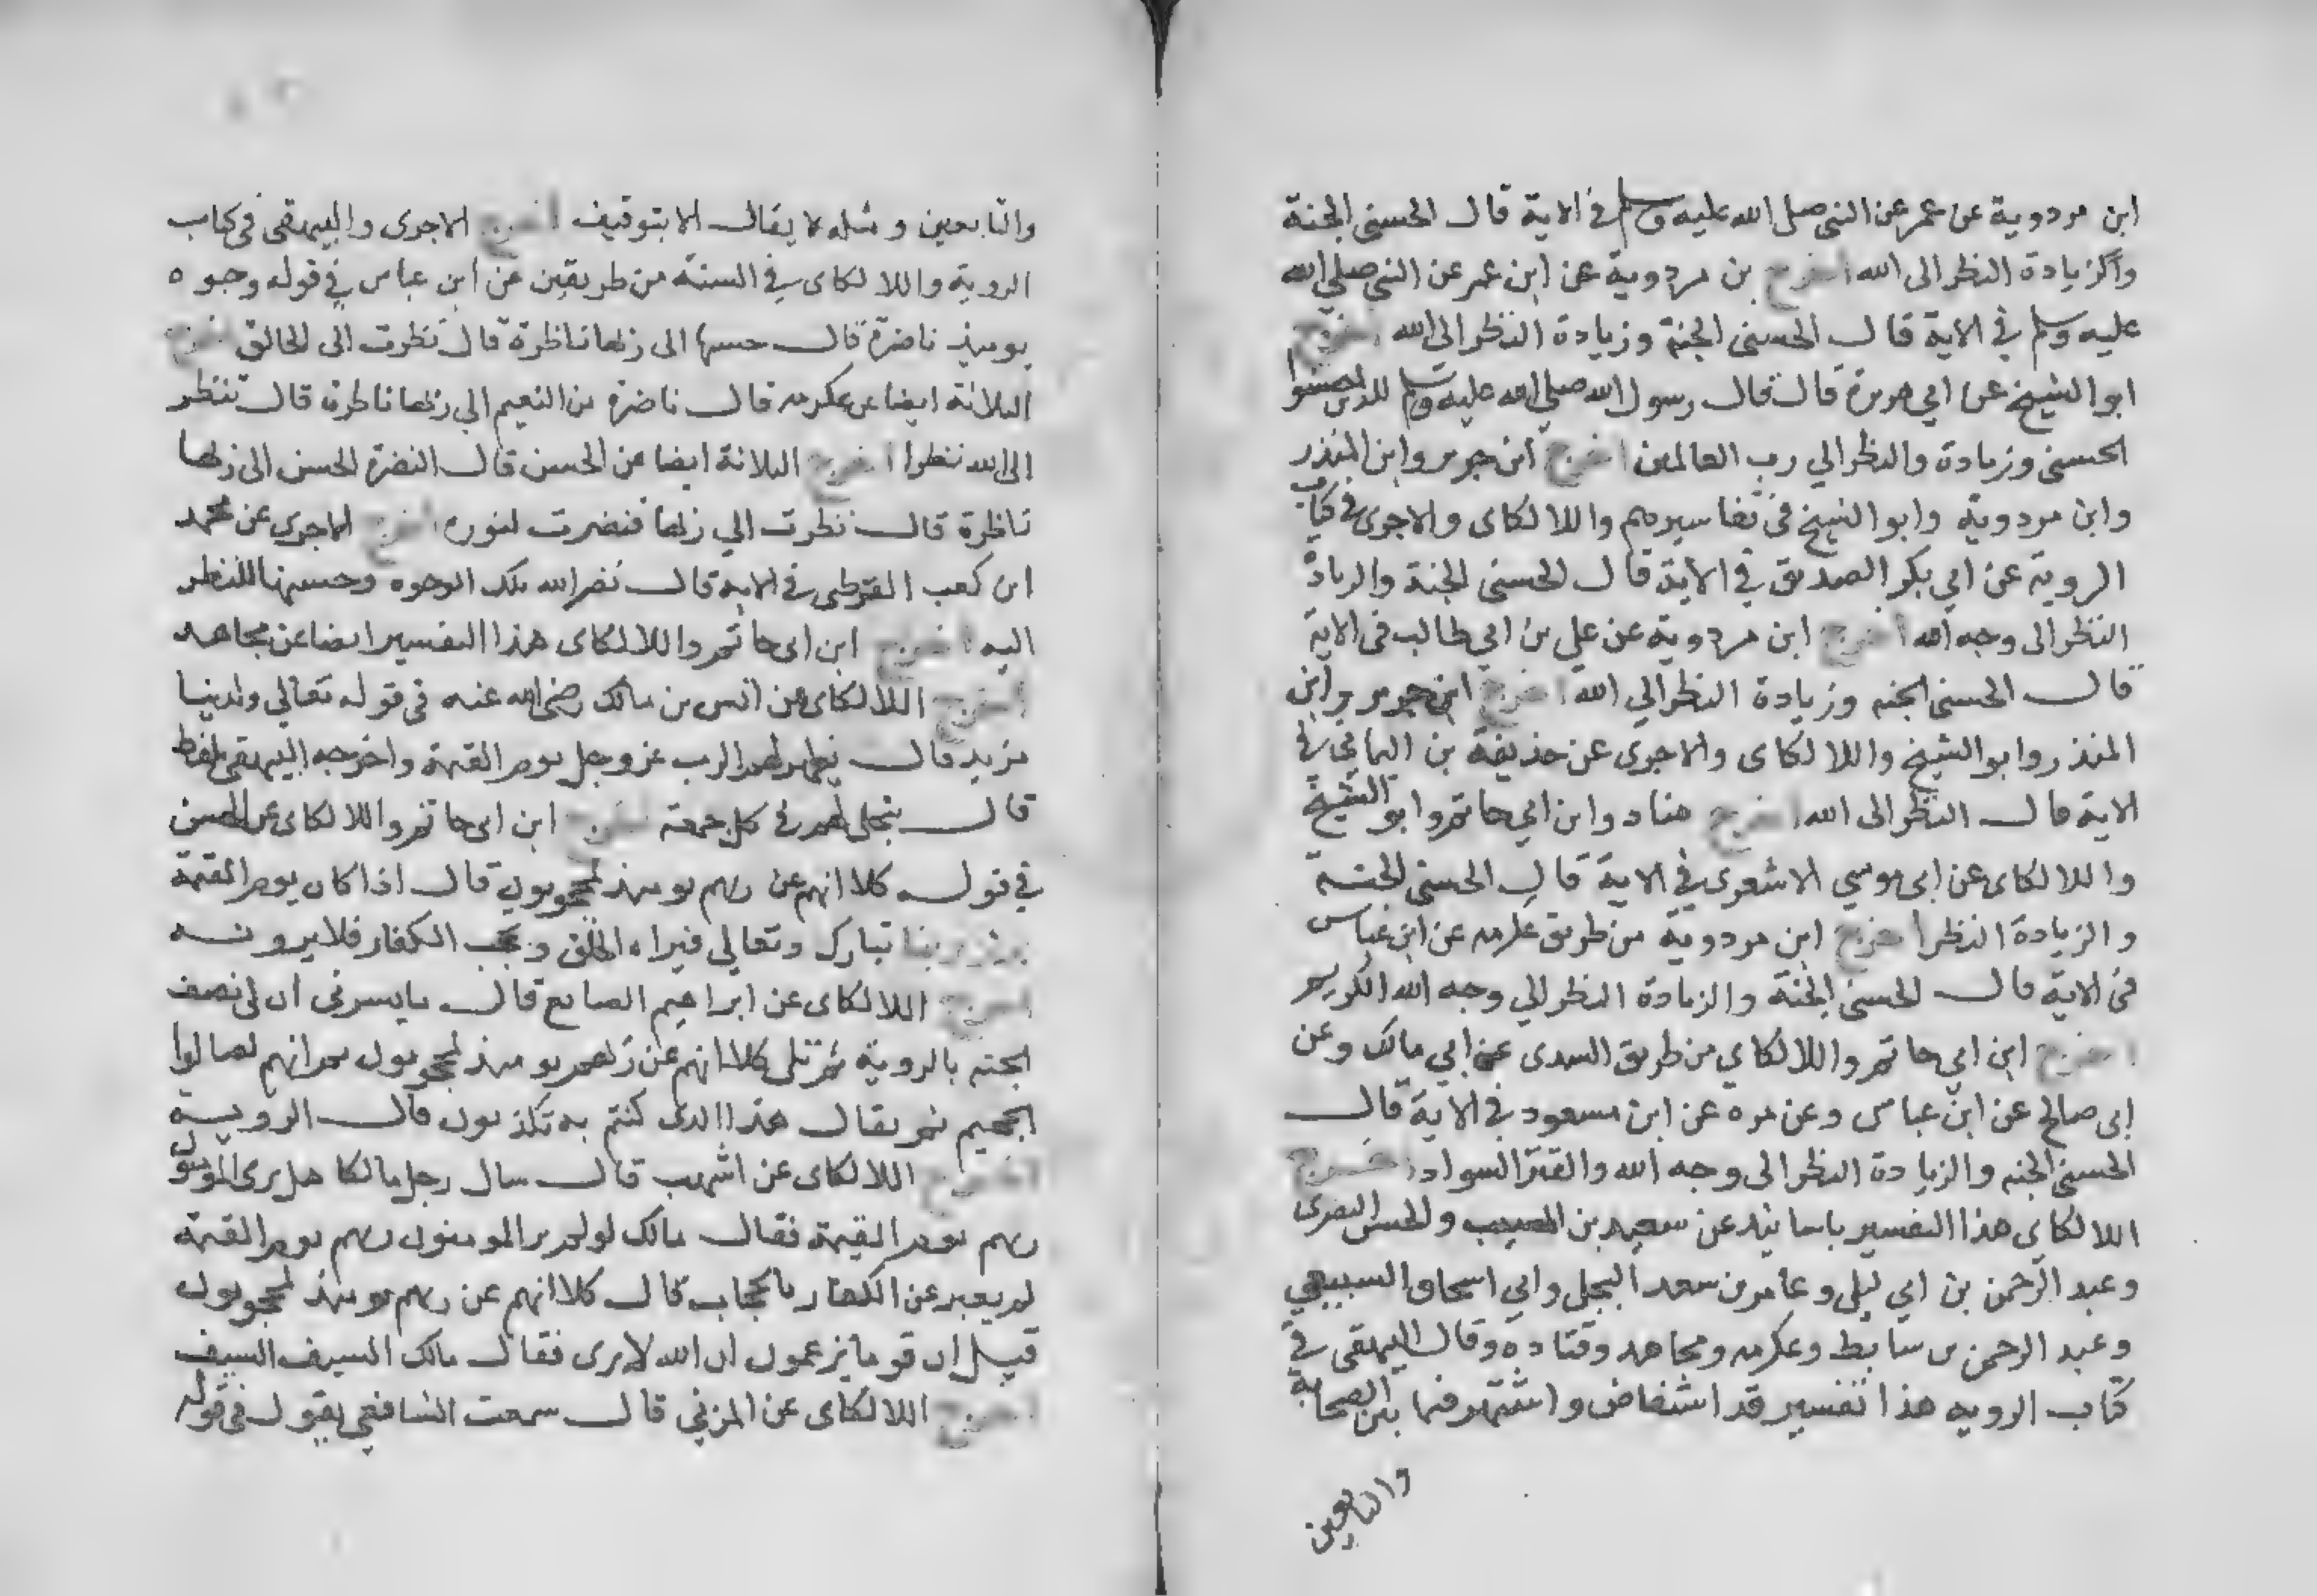 ابن مردوية عن عمر عن النبي صلى الله عليه وسلم في الاية قال الحسنى الجنة
والزيادة النظر الى الله اخرج بن مردوية عن ابن عمر عن النبي صلي الله
عليه وسلم في الاية قال الحسنى الجنة وزيادة النظر الى الله اخرج
ابو الشيخ عن ابي هريرة قال قال رسول الله صلي الله عليه وسلم للذين احسنوا
الحسنى وزيادة والنظر الي رب العالمين اخرج ابن جرير وابن المنذر
وابن مردوية وابو الشيخ في تفاسيرهم واللالكاى والاجرى في كتاب
الروية عن ابي بكر الصديق في الاية قال الحسنى الجنة والزيادة
النظر الى وجه الله اخرج ابن مردوية عن علي بن ابي طالب في الاية
قال الحسنى الجنه وزيادة النظر الي الله اخرج ابن جرير وابن
المنذر وابو الشيخ واللالكاى والاجرى عن حذيفة بن اليماني في
الاية قال النظر الى الله اخرج هناد وابن ابي حاتم وابو الشيخ
واللالكاى عن ابى موسي الاشعري في الاية قال الحسنى الجنة
والزيادة النظر اخرج ابن مردوية من طريق عكرمه عن ابن عباس
في الاية قال الحسنى الجنة والزيادة النظر الي وجه الله الكريم
اخرج ابن ابي حاتم واللالكاي من طريق السدى عن ابي مالك وعن
ابى صالح عن ابن عباس وعن مره عن ابن مسعود في الاية قال
الحسنى الجنه والزيادة النظر الى وجه الله والقتر السواد اخرج
اللالكاى هذا التفسير باسانيد عن سعيد بن المسيب والحسن البصرى
وعبد الرحمن بن ابي ليلى وعامر بن سعد البجلى وابي اسحاق السبيعي
وعبد الرحمن بن سابط وعكرمه ومجاهد وقتادة وقال البيهقى في
كتاب الرويه هذا تفسير قد استفاض واشتهر فيما بين الصحابة
والتابعين
والتابعين ومثله لا يقال الا بتوقيف اخرج الاجرى والبيهقى في كتاب
الروية واللالكاى في السنة من طريقين عن ابن عباس في قوله وجوه
يوميذ ناضرة قال حسنها الى ربها ناظرة قال نظرت الى الخالق اخرج
الثلاثة ايضا عن عكرمه قال ناضرة من النعيم الي ربها ناظرة قال تنظر
الى الله نظرا اخرج الثلاثة ايضا عن الحسن قال النضرة الحسن الى ربها
ناظرة قال نظرت الي ربها فنضرت لنوره اخرج الاجرى عن محمد
ابن كعب القرظى في الاية قال نضر الله تلك الوجوه وحسنها للنظر
اليه اخرج ابن ابى حاتم واللالكاى هذا التفسير ايضا عن مجاهد
اخرج اللالكاى عن انس بن مالك رضي الله عنه في قوله تعالي ولدينا
مزيد قال يظهر لهم الرب عز وجل يوم القيمة واخرجه البيهقى بلفظ
قال يتجلى لهم في كل جمعة اخرج ابن ابى حاتم واللالكاى عن الحسن
في قول كلا انهم عن ربهم يوميذ لمحجوبون قال اذا كان يوم القيمة
ربنا تبارك وتعالي فيراه الخلق وتحجب الكفار فلا يرونه
اخرج اللالكاى عن ابراهيم الصايغ قال ما يسرنى ان لى نصف
الجنه بالروية ثم تلى كلا انهم عن ربهم يوميذ لمحجوبون ثم انهم لصالوا
الجحيم ثم يقال هذا الذى كنتم به تكذبون قال الروية
اخرج اللالكاى عن اشهب قال سال رجل مالكا هل يرى المومنون
ربهم يوم القيمة فقال مالك لو لم ير المومنون ربهم يوم القيمة
لم يعير عن الكفار بالحجاب قال كلا انهم عن ربهم يوميذ لمحجوبون
قيل ان قوما يزعمون ان الله لا يرى فقال مالك السيف السيف
اخرج اللالكاى عن المزني قال سمعت الشافعي يقول في قوله